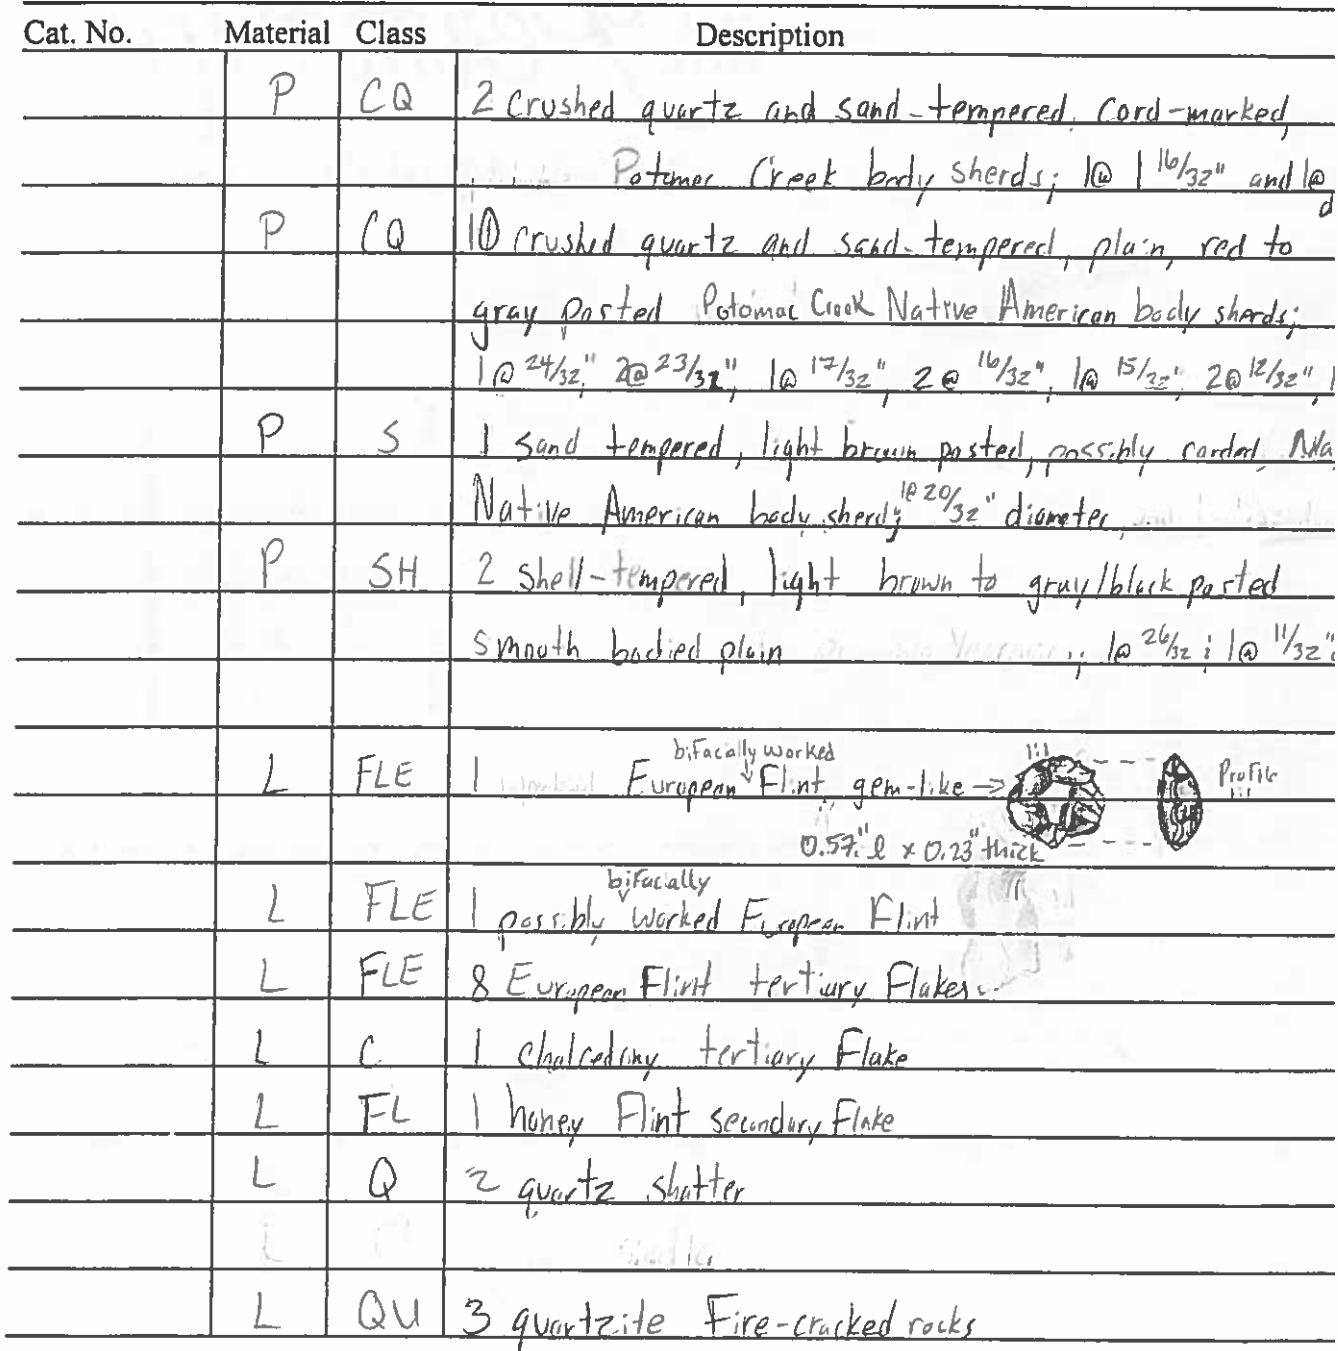 Cat. No. Material Class Description
P CQ 2 crushed quartz and sand-tempered, cord-marked,
Potomac Creek body sherds; 1@ 1 16/32" and 1@
d
P CQ 10 crushed quartz and sand-tempered, plain, red to
gray pasted Potomac Creek Native American body sherds;
1@ 24/32", 2@ 23/32", 1@ 17/32", 2@ 16/32", 1@ 15/32", 2@ 12/32", 1
P S 1 sand tempered, light brown pasted, possibly corded, Na
Native American body sherd; 1@ 20/32" diameter
P SH 2 shell-tempered, light brown to gray/black pasted
smooth bodied plain ; 1@ 26/32; 1@ 11/32"
bifacially worked
L FLE 1 European Flint gem-like → 1:1 Profile 1:1
0.57" l x 0.23" thick
bifacially
L FLE 1 possibly worked European Flint
L FLE 8 European Flint tertiary Flakes
L C 1 chalcedony tertiary Flake
L FL 1 honey Flint secondary Flake
L Q 2 quartz shatter
L QU 3 quartzite Fire-cracked rocks